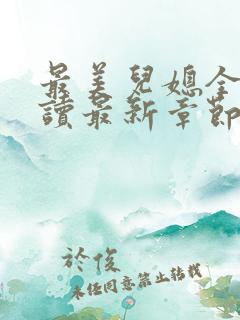 最美兒媳全
讀最新章節
於俊
未任同意禁止轉載